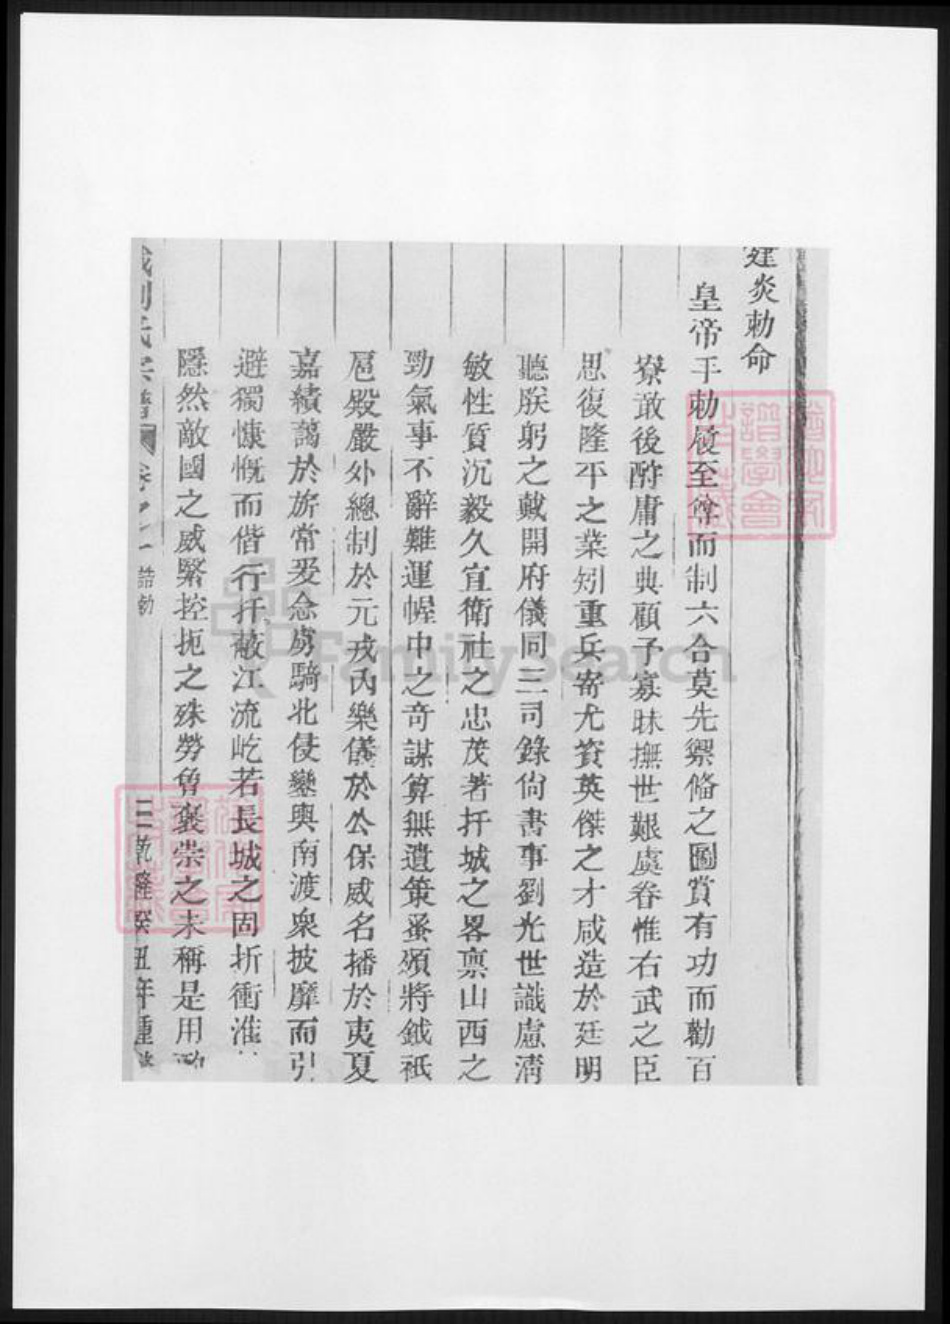 建炎勅命
皇帝手勅履至尊而制六合莫先禦備之圖賞有功而勸百
寮敢後酧庸之典顧予寡昧撫世艱虞眷惟右武之臣
思復隆平之業矧重兵寄尤資英傑之才咸造於廷明
聽朕躬之戴開府儀同三司錄尙書事劉光世識慮淸
敏性質沉毅久宣衛社之忠茂著扞城之畧禀山西之
勁氣事不辭難運幄中之奇謀算無遺策蚤頒將鉞祇
扈殿嚴外總制於元戎內樂儀於公保威名播於夷夏
嘉績藹於旂常爰念虜騎北侵鑾輿南渡衆披靡而引
避獨慷慨而偕行扞蔽江流屹若長城之固折衝淮
隱然敵國之威緊控扼之殊勞曾褒崇之未稱是用
劉氏宗譜 卷之一 誥勅 二 乾隆癸丑年重
FamilySearch